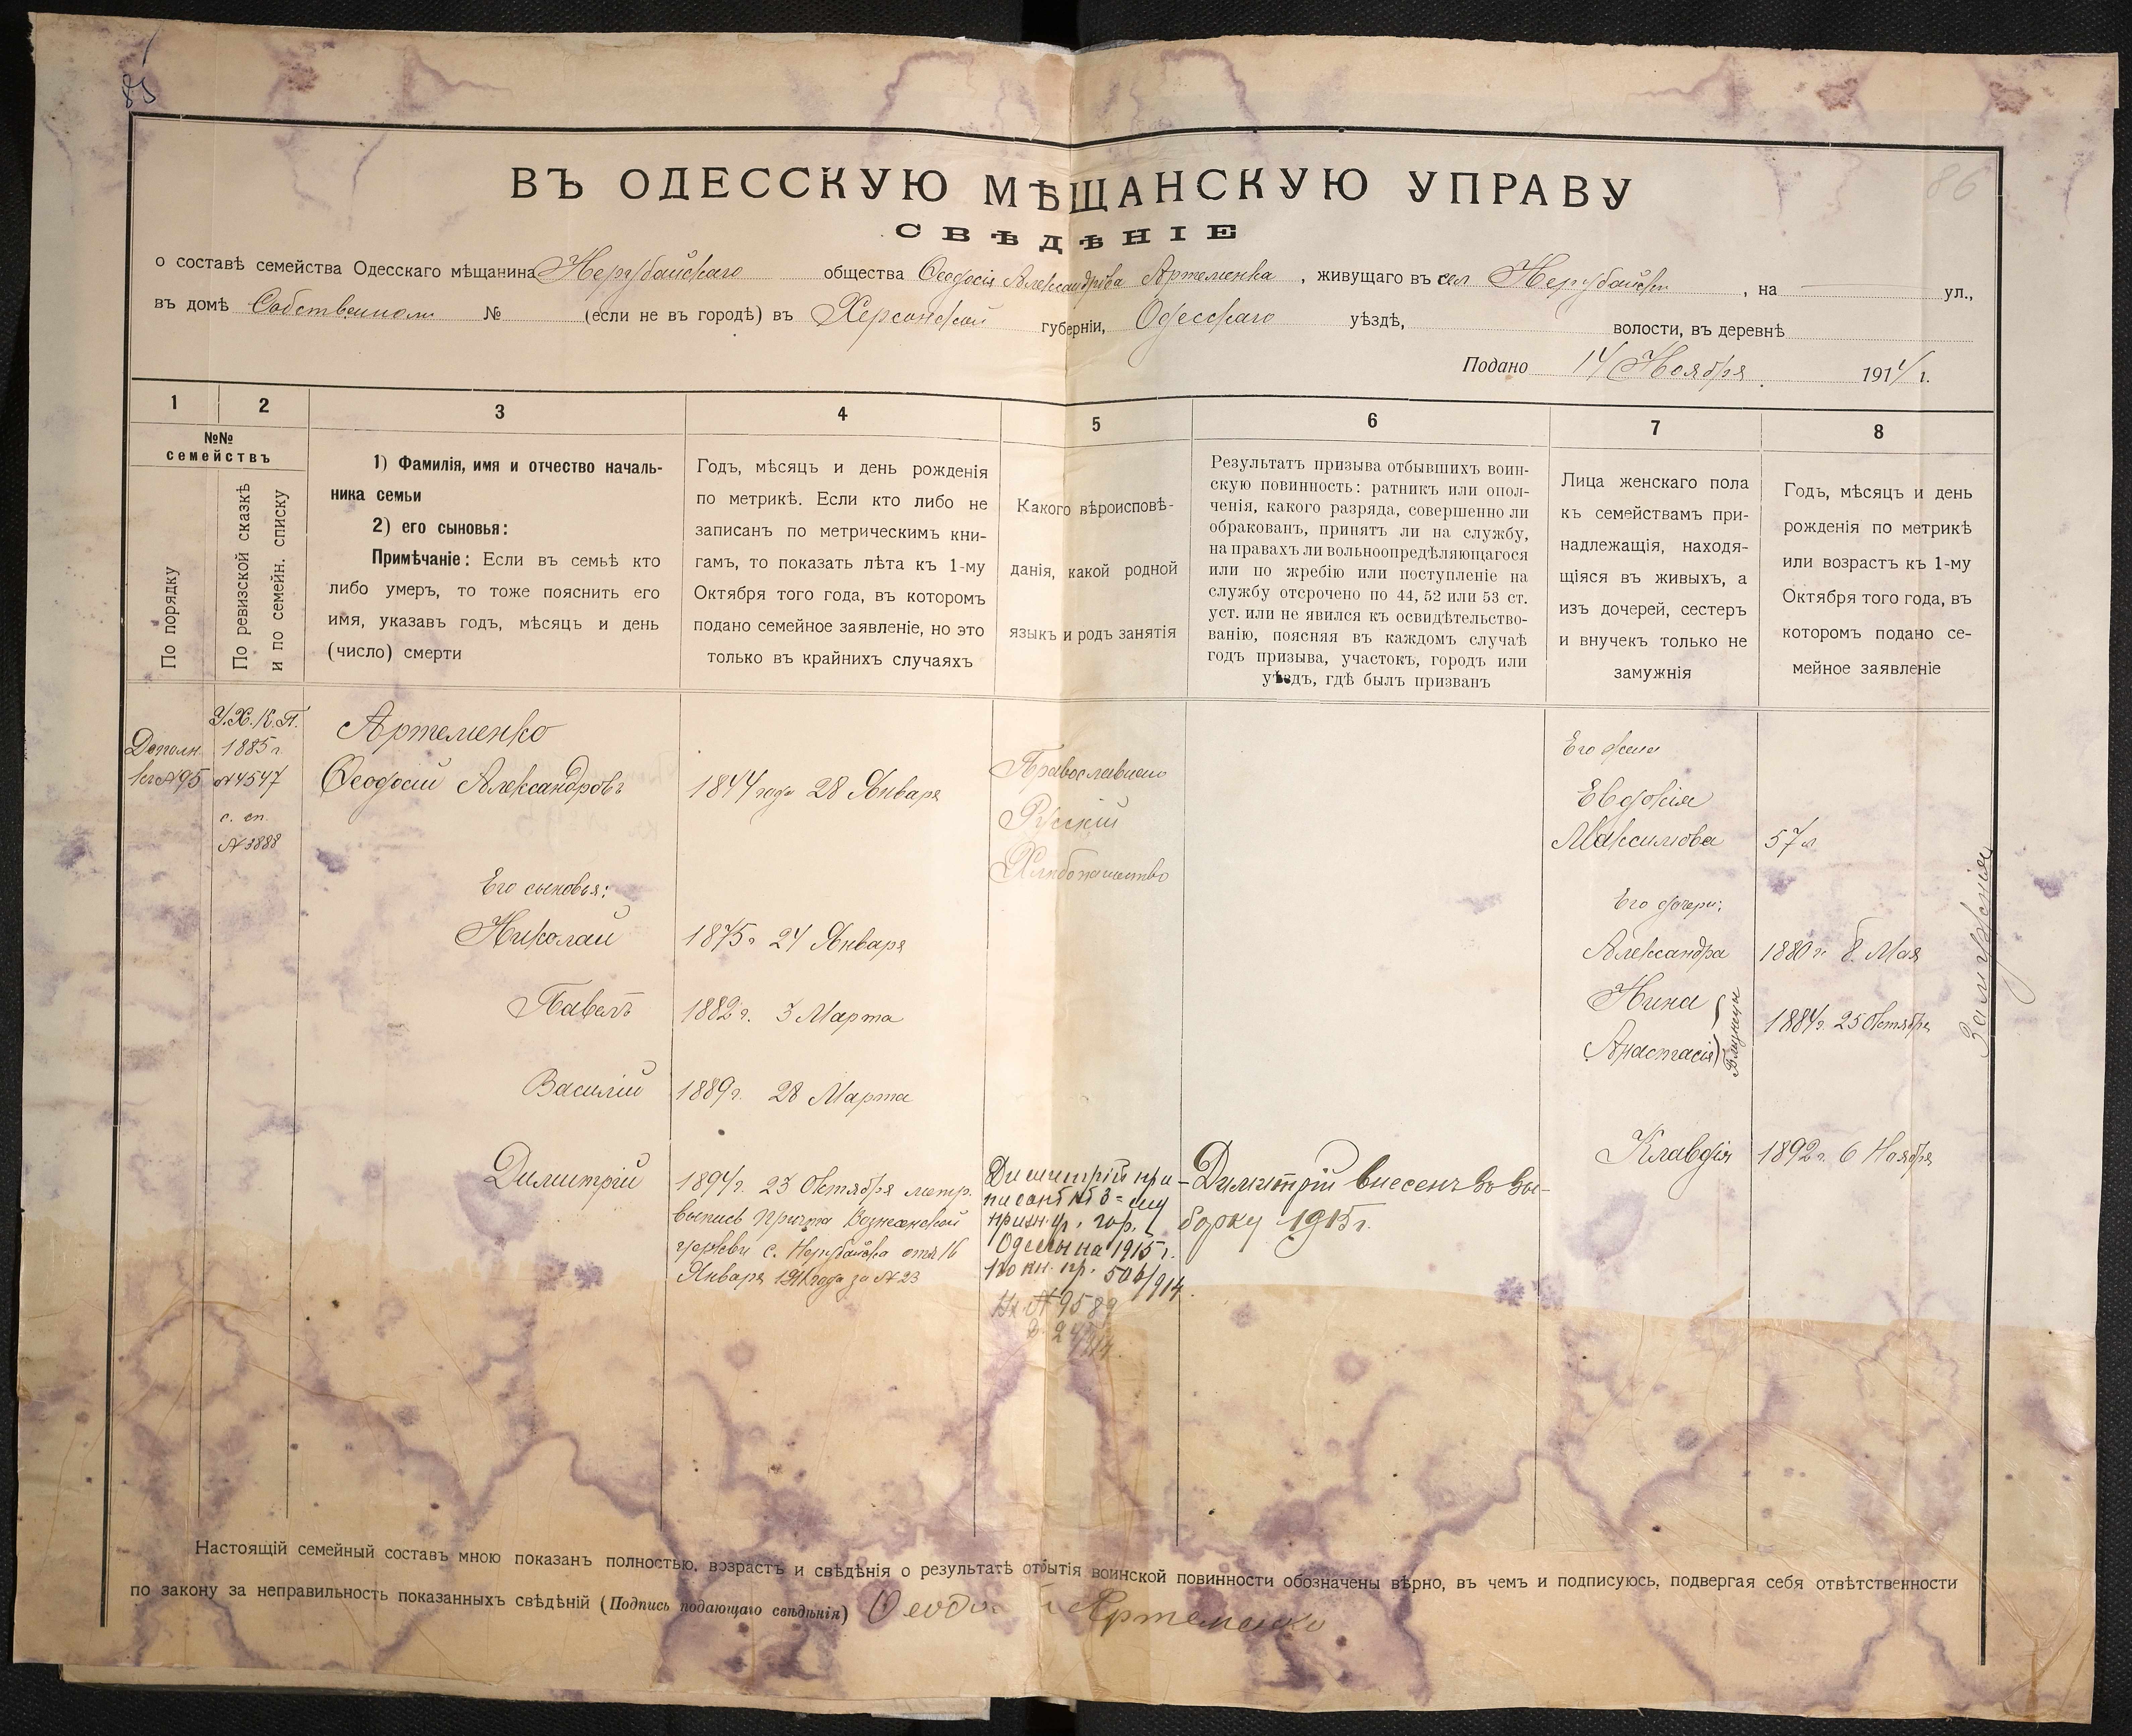 85
86
ВЪ ОДЕССКУЮ МѢЩАНСКУЮ УПРАВУ
СВѢДѢНІЕ
о составѣ семейства Одесскаго мѣщанина Нерубайскаго общества Ѳеодосія Александрова Артеменка, живущаго въ сел Нерубайски, на — ул.,
въ домѣ Собственном № (если не въ городѣ) въ Херсонской губерніи, Одесскаго уѣздѣ, волости, въ деревнѣ
Подано 14 Ноября 1914 г.
1 2 3 4 5 6 7 8
№№
семействъ
По порядку
По ревизской сказкѣ
и по семейн. списку
1) Фамилія, имя и отчество началь-
ника семьи
2) его сыновья:
Примѣчаніе: Если въ семьѣ кто
либо умеръ, то тоже пояснить его
имя, указавъ годъ, мѣсяцъ и день
(число) смерти
Годъ, мѣсяцъ и день рожденія
по метрикѣ. Если кто либо не
записанъ по метрическимъ кни-
гамъ, то показать лѣта къ 1-му
Октября того года, въ которомъ
подано семейное заявленіе, но это
только въ крайнихъ случаяхъ
Какого вѣроисповѣ-
данія, какой родной
языкъ и родъ занятія
Результатъ призыва отбывшихъ воин-
скую повинность: ратникъ или опол-
ченія, какого разряда, совершенно ли
обракованъ, принятъ ли на службу,
на правахъ ли вольноопредѣляющагося
или по жребію или поступленіе на
службу отсрочено по 44, 52 или 53 ст.
уст. или не явился къ освидѣтельство-
ванію, поясняя въ каждомъ случаѣ
годъ призыва, участокъ, городъ или
уѣздъ, гдѣ былъ призванъ
Лица женскаго пола
къ семействамъ при-
надлежащія, находя-
щіяся въ живыхъ, а
изъ дочерей, сестеръ
и внучекъ только не
замужнія
Годъ, мѣсяцъ и день
рожденія по метрикѣ
или возрастъ къ 1-му
Октября того года, въ
которомъ подано се-
мейное заявленіе
Дополн.
№95
У.Х.К.П.
1885 г.
№4547
с. сп.
№3888
Артеменко
Ѳеодосій Александровъ
1844 года 28 Января
Православнаго
Русскій
Хлѣбопашество
Его жена
Евдокія
Максимова
57 л
Его сыновья:
Николай
1875 г 24 Января
Павелъ
1882 г. 3 Марта
Василій
1889 г. 28 Марта
Димитрій
1894 г. 23 Октября метр.
выпись Причта Вознесенской
церкви с. Нерубайска отъ 16
Января 1911 года за №23
Димитрій при-
писанъ къ 3-му
призн. уч. гор.
Одессы на 1915 г.
по кн. пр. 506/914.
Вх. №9589
Димитрій внесенъ въ вы-
борку 1915 г.
Его дочери:
Александра
1880 г. 8 Мая
Нина
Анастасія
Близнецы
1884 г. 25 Октября
Клавдія
1892 г. 6 Ноября
Замужнія
Настоящій семейный составъ мною показанъ полностью, возрастъ и свѣдѣнія о результатѣ отбытія воинской повинности обозначены вѣрно, въ чемъ и подписуюсь, подвергая себя отвѣтственности
по закону за неправильность показанныхъ свѣдѣній (Подпись подающаго свѣдѣнія) Ѳеодосій Артеменко